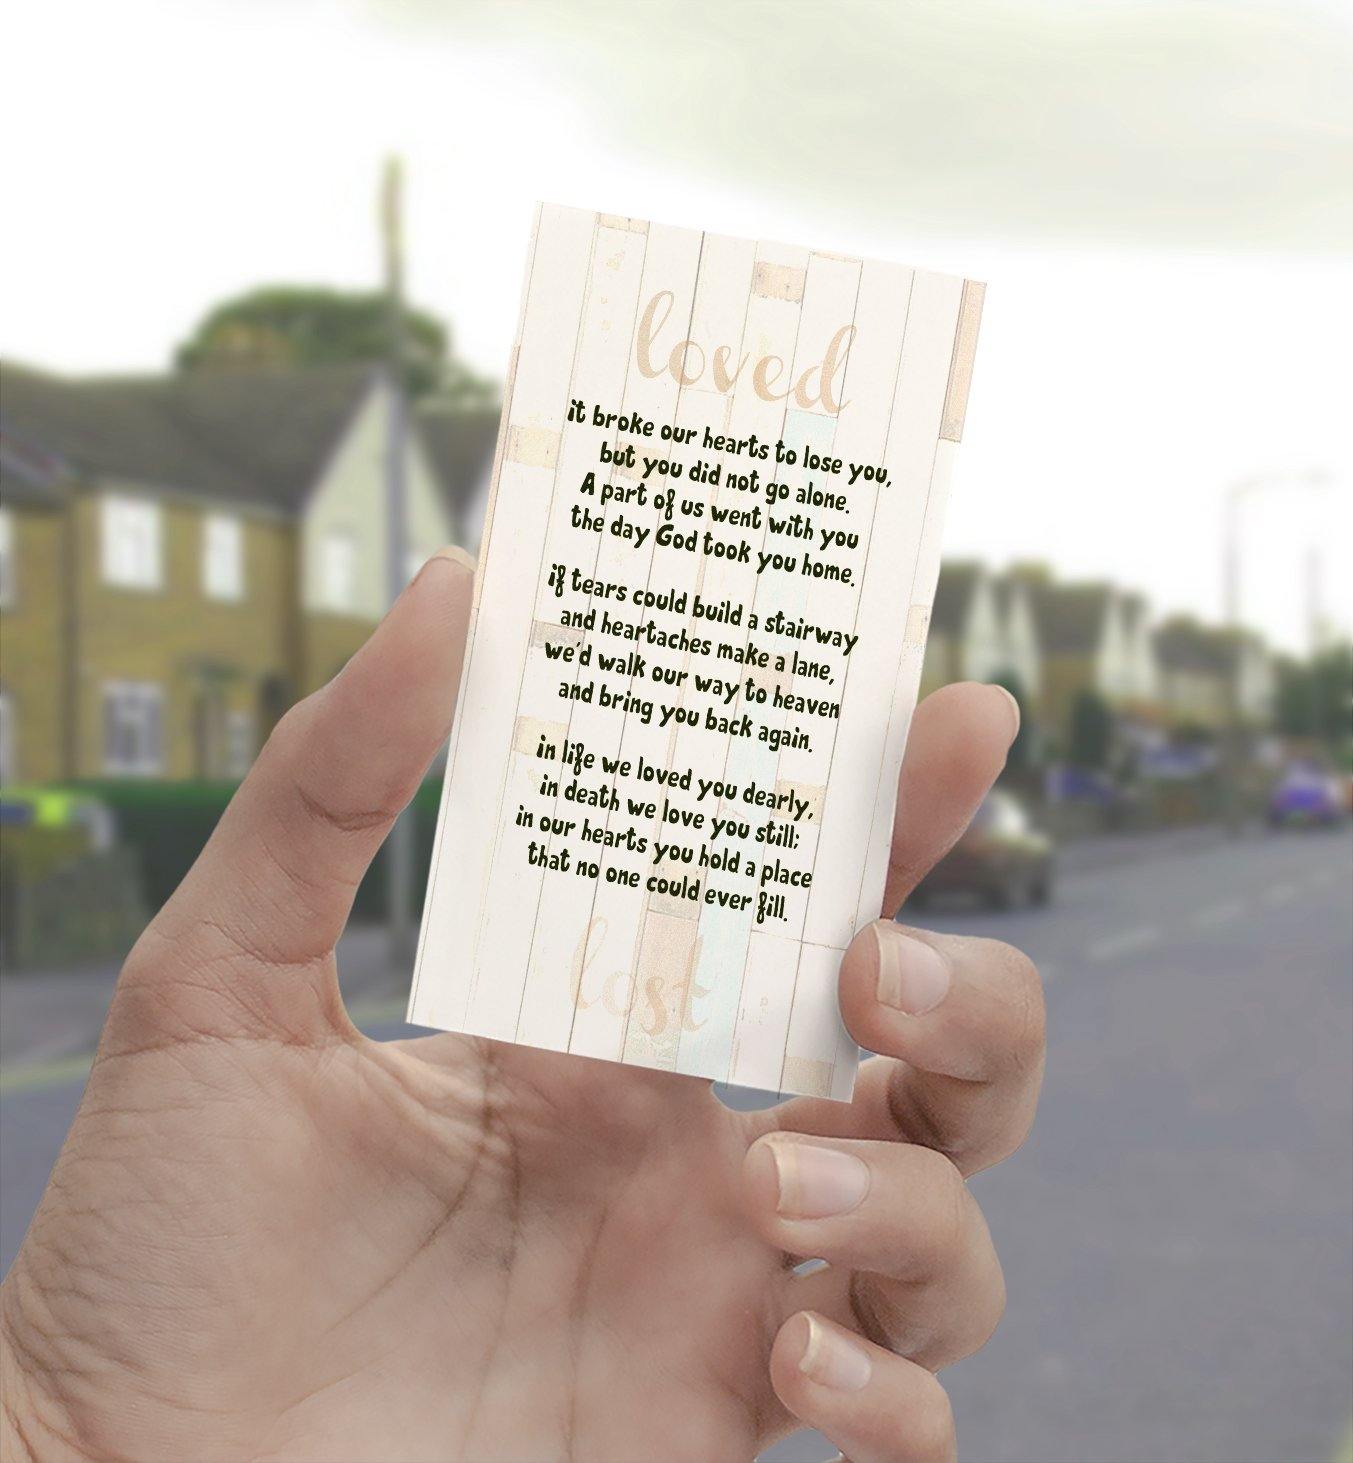 loved
it broke our hearts to lose you,
but you did not go alone.
A part of us went with you
the day God took you home.
if tears could build a stairway
and heartaches make a lane,
we'd walk our way to heaven
and bring you back again.
in life we loved you dearly,
in death we love you still;
in our hearts you hold a place
that no one could ever fill.
lost